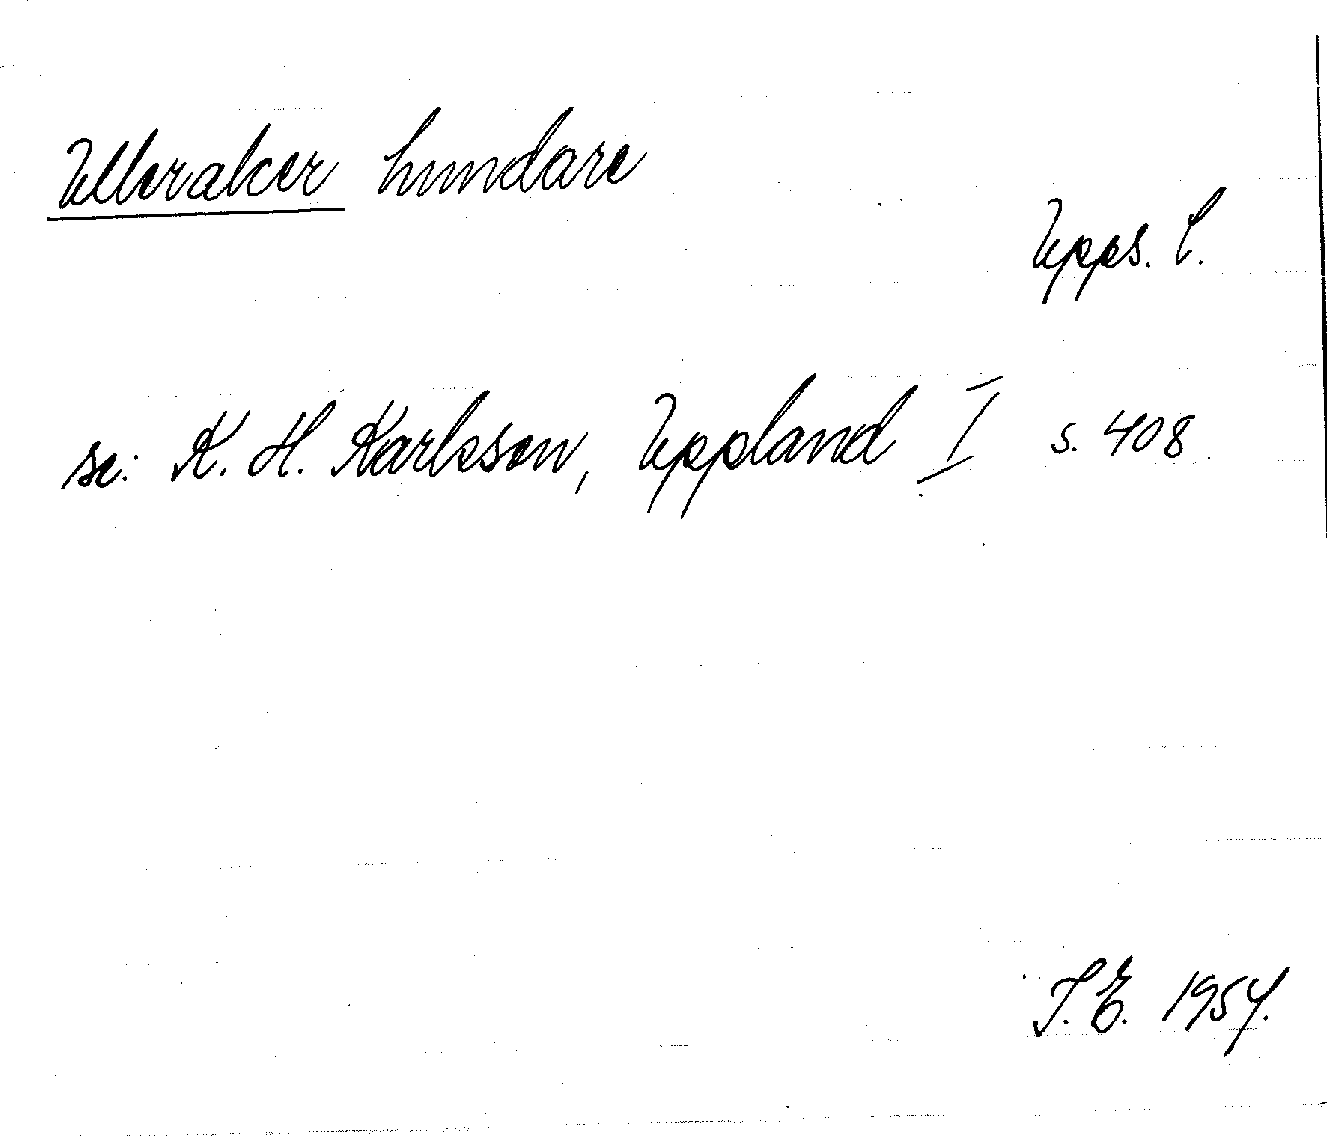 Ulleraker hundare
Upps. l.
se: K. H. Karlsson, Uppland I s. 408
T. E. 1954.